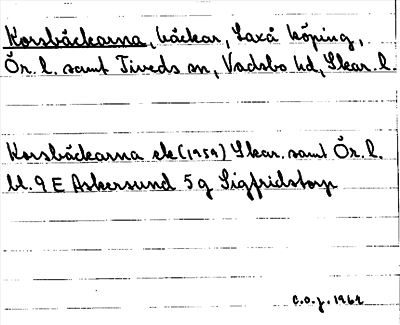 Korsbäckarna, bäckar, Laxå köping,
Ör. l. samt Tiveds sn, Vadsbo hd, Skar. l.
Korsbäckarna ek (1959) Skar. samt Ör. l.
bl. 9 E Askersund 5 g Sigfridstorp
C.O.J. 1962